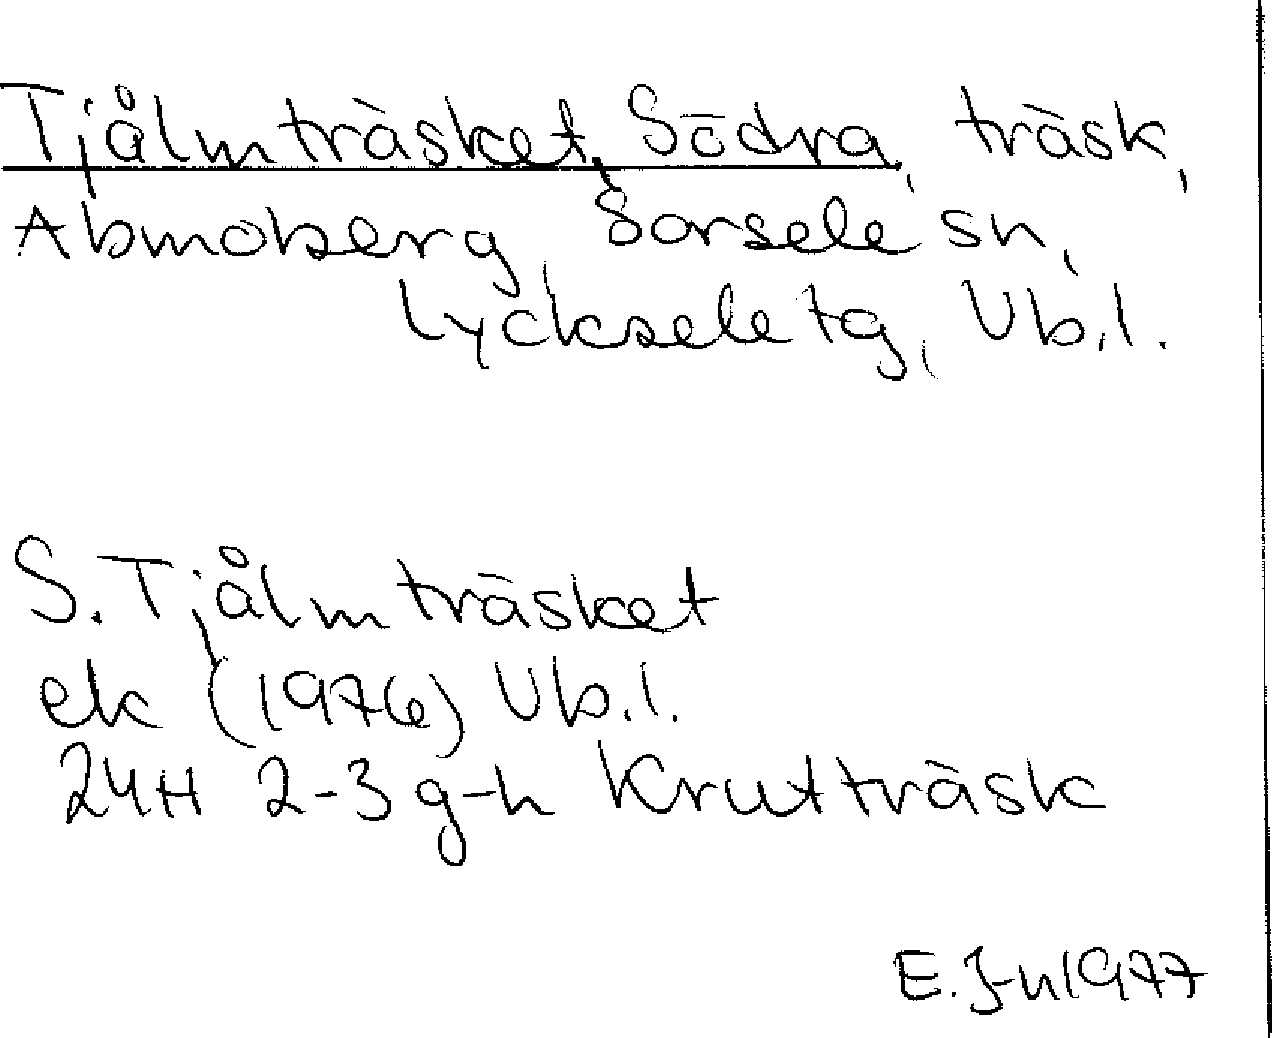 Tjålmträsket, Södra, träsk,
Abmoberg, Sorsele sn,
Lycksele tg, Vb.l.
S. Tjålmträsket
ek (1976) Vb.l.
24H 2-3 g-h Krutträsk
E. J-n 1977